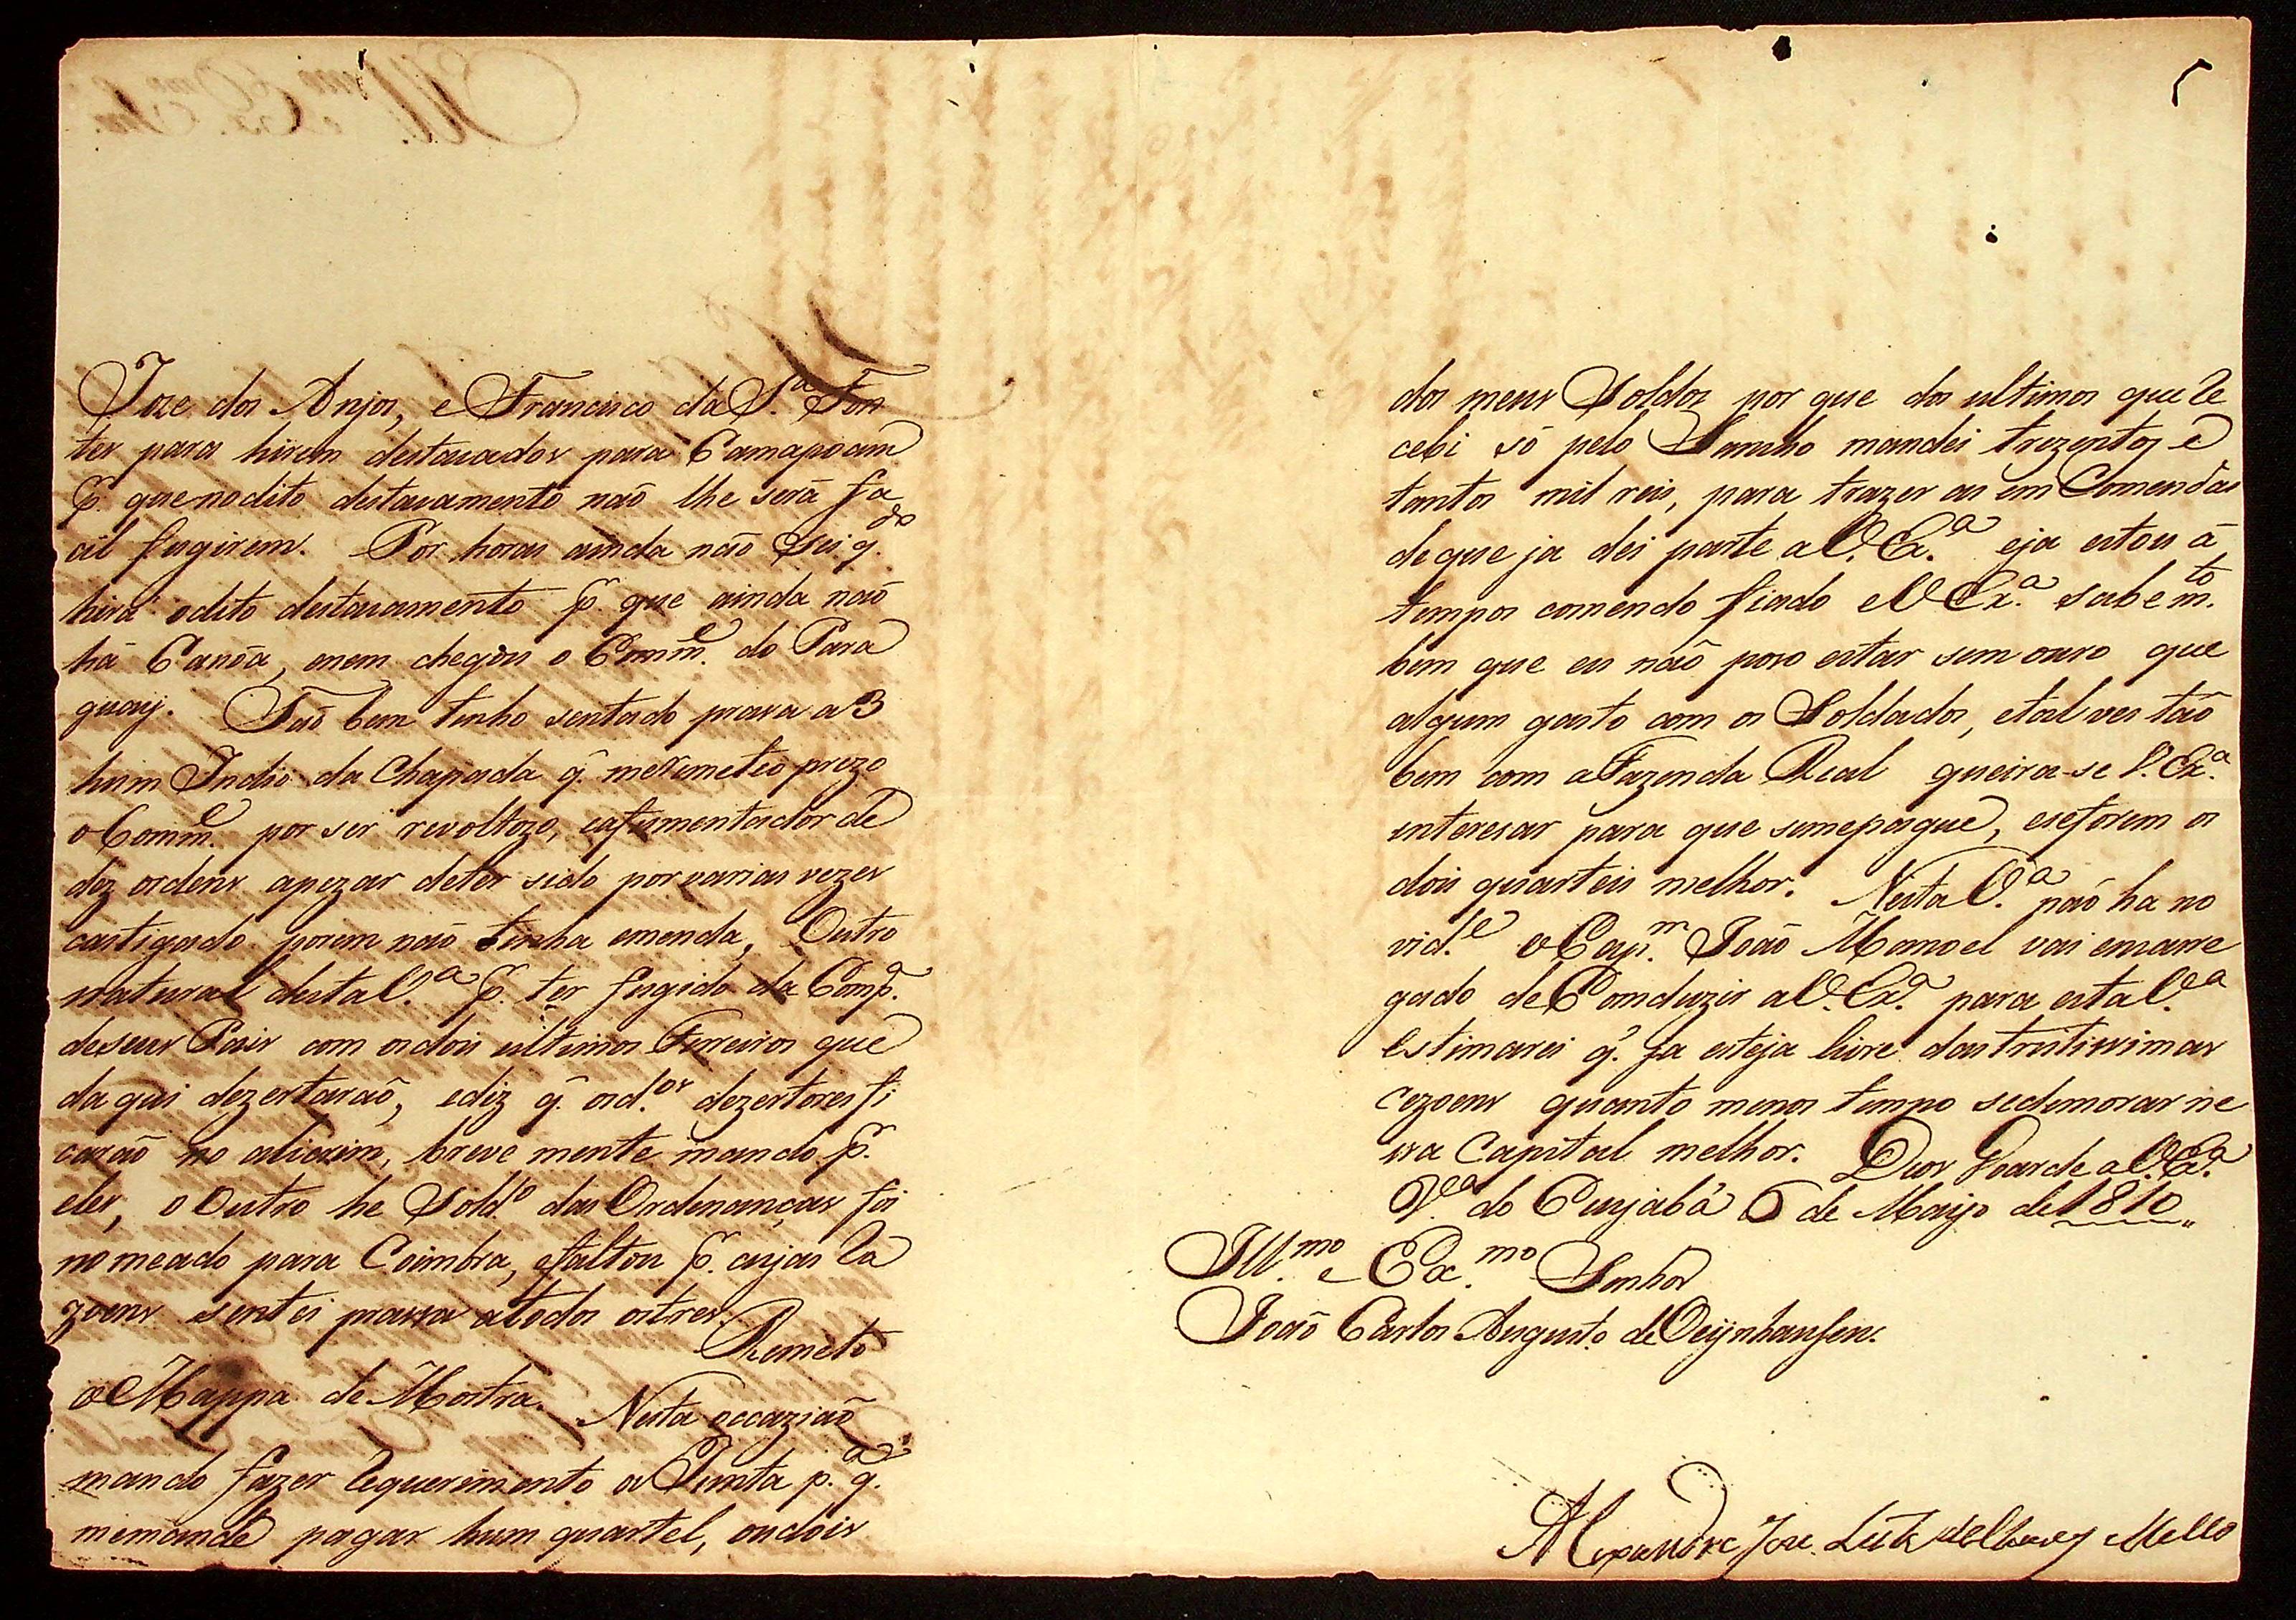 Joze dos Anjos, e Francisco da S.ª Fon
tes para hirem destacados para Camapoam
p.r que no dito destacamento não lhe será fa
cil fugirem. Por horas ainda não sei q.do
hirá o dito destacamento p.r que ainda não
há Canôa, enem chegou o Comm.e do Para
guay. Tão bem tenho sentado prasa a 3
hum Indio da Chapada q. me remeteo prezo
o Comm.e por ser revoltozo, e afumentador de
dezordens apezar deter sido por varias vezes
castigado porem não tinha emenda, Outro
natural desta V.ª p.r ter fugido da Comp.ª
de seus Pais com os dois ultimos que
daqui dezertarão, ediz q. os d.os dezertores fi
carão no alicrim, breve mente mando p.r
eles, o Outro he Sold.o das Ordenanças foi
nomeado para Coimbra, efaltou p.r cujas ra
zoens sentei prassa atodos os tres. Remeto
o Mappa de Mostra. Nesta occazião
mando fazer requerimento a Junta p.ª q.
memande pagar hum quartel, ou dois
dos meus Soldos por que dos ultimos que re
cebi só pelo mandei trezentos e
tantos mil reis, para trazer as em Comendas
de que ja dei parte a V. Ex.ª eja estou á
tempos comendo fiado e V Ex.ª sabe m.to
bem que eu não poso estar sem ouro que
algum gasto com os Soldados, etal ves tão
bem com a Fazenda Real queira-se V. Ex.ª
interesar para que semepague, eseforem os
dois quarteis melhor. Nesta V.ª não ha no
vid.e o Cap.m João Manoel vai encarre
gado de Comduzir a V. Ex.ª para esta V.ª
estimarei q. ja esteja livre das tristissimas
cezoens quanto menos tempo sedemorar ne
ssa Capital melhor. Deos Goarde a V. Ex.ª
V.ª do Cuyabá 6 de Mayo de 1810
Ill.mo e Ex.mo Senhor
João Carlos Augusto de Oeijnhausen.
Alexandre Joze Mello